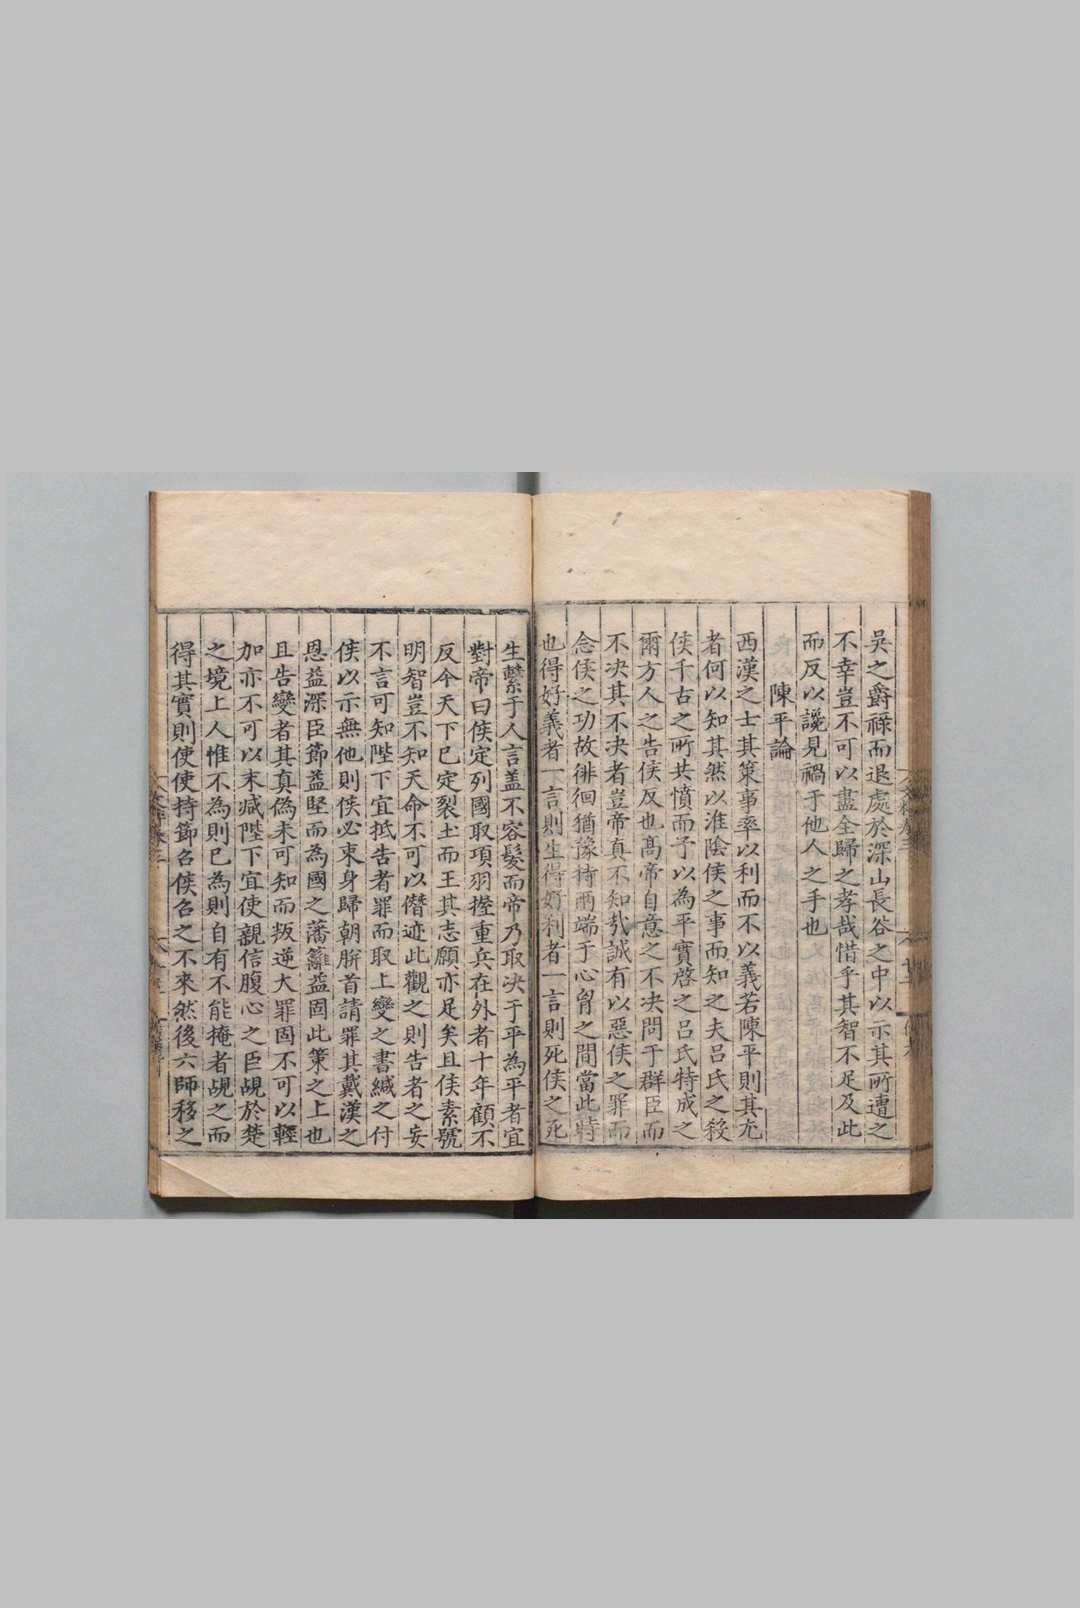 吳之爵祿而退處於深山長谷之中以示其所遭之
不幸豈不可以盡全歸之孝哉惜乎其智不足及此
而反以讒見禍于他人之手也
陳平論
西漢之士其策事率以利而不以義若陳平則其尤
者何以知其然以淮陰侯之事而知之夫呂氏之殺
侯千古之所共憤而予以為平實啓之呂氏特成之
爾方人之告侯反也髙帝自意之不决問于群臣而
不决其不决者豈帝真不知㢤誠有以惡侯之罪而
念侯之功故徘徊猶豫持兩端于心胷之間當此時
也得好義者一言則生得好利者一言則死侯之死
生繫于人言盖不容髮而帝乃取决于平為平者宜
對帝曰侯定列國取項羽握重兵在外者十年顧不
反今天下已定裂土而王其志願亦足矣且侯素號
明智豈不知天命不可以僭迹此觀之則告者之妄
不言可知陛下宜抵告者罪而取上變之書緘之付
侯以示無他則侯必束身歸朝胼首請罪其戴漢之
恩益深臣節益堅而為國之藩籬益固此策之上也
且告變者其真偽未可知而叛逆大罪固不可以輕
加亦不可以末减陛下宜使親信腹心之臣覘於楚
之境上人惟不為則已為則自有不能掩者覘之而
得其實則使使持節名侯名之不來然後六師移之